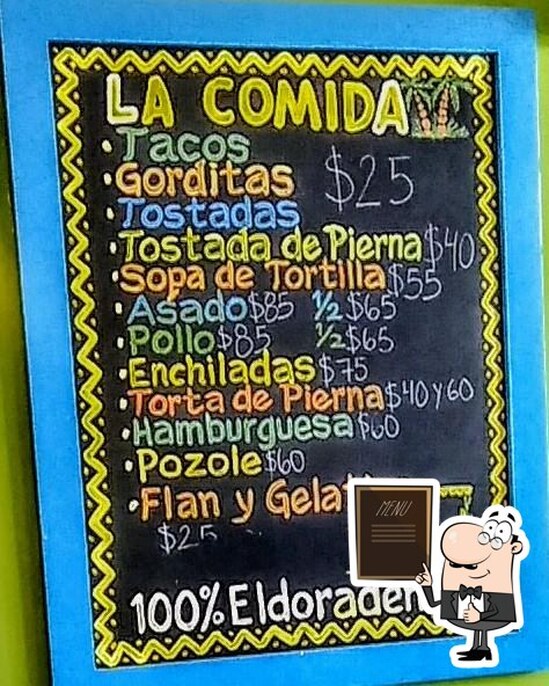 LA COMIDA
• Tacos
• Gorditas $25
• Tostadas
• Tostada de Pierna $40
• Sopa de Tortilla $55
• Asado $85 1/2 $65
• Pollo $85 1/2 $65
• Enchiladas $75
• Torta de Pierna $40 y 60
• Hamburguesa $60
• Pozole $60
• Flan y
$25
100%
MENU